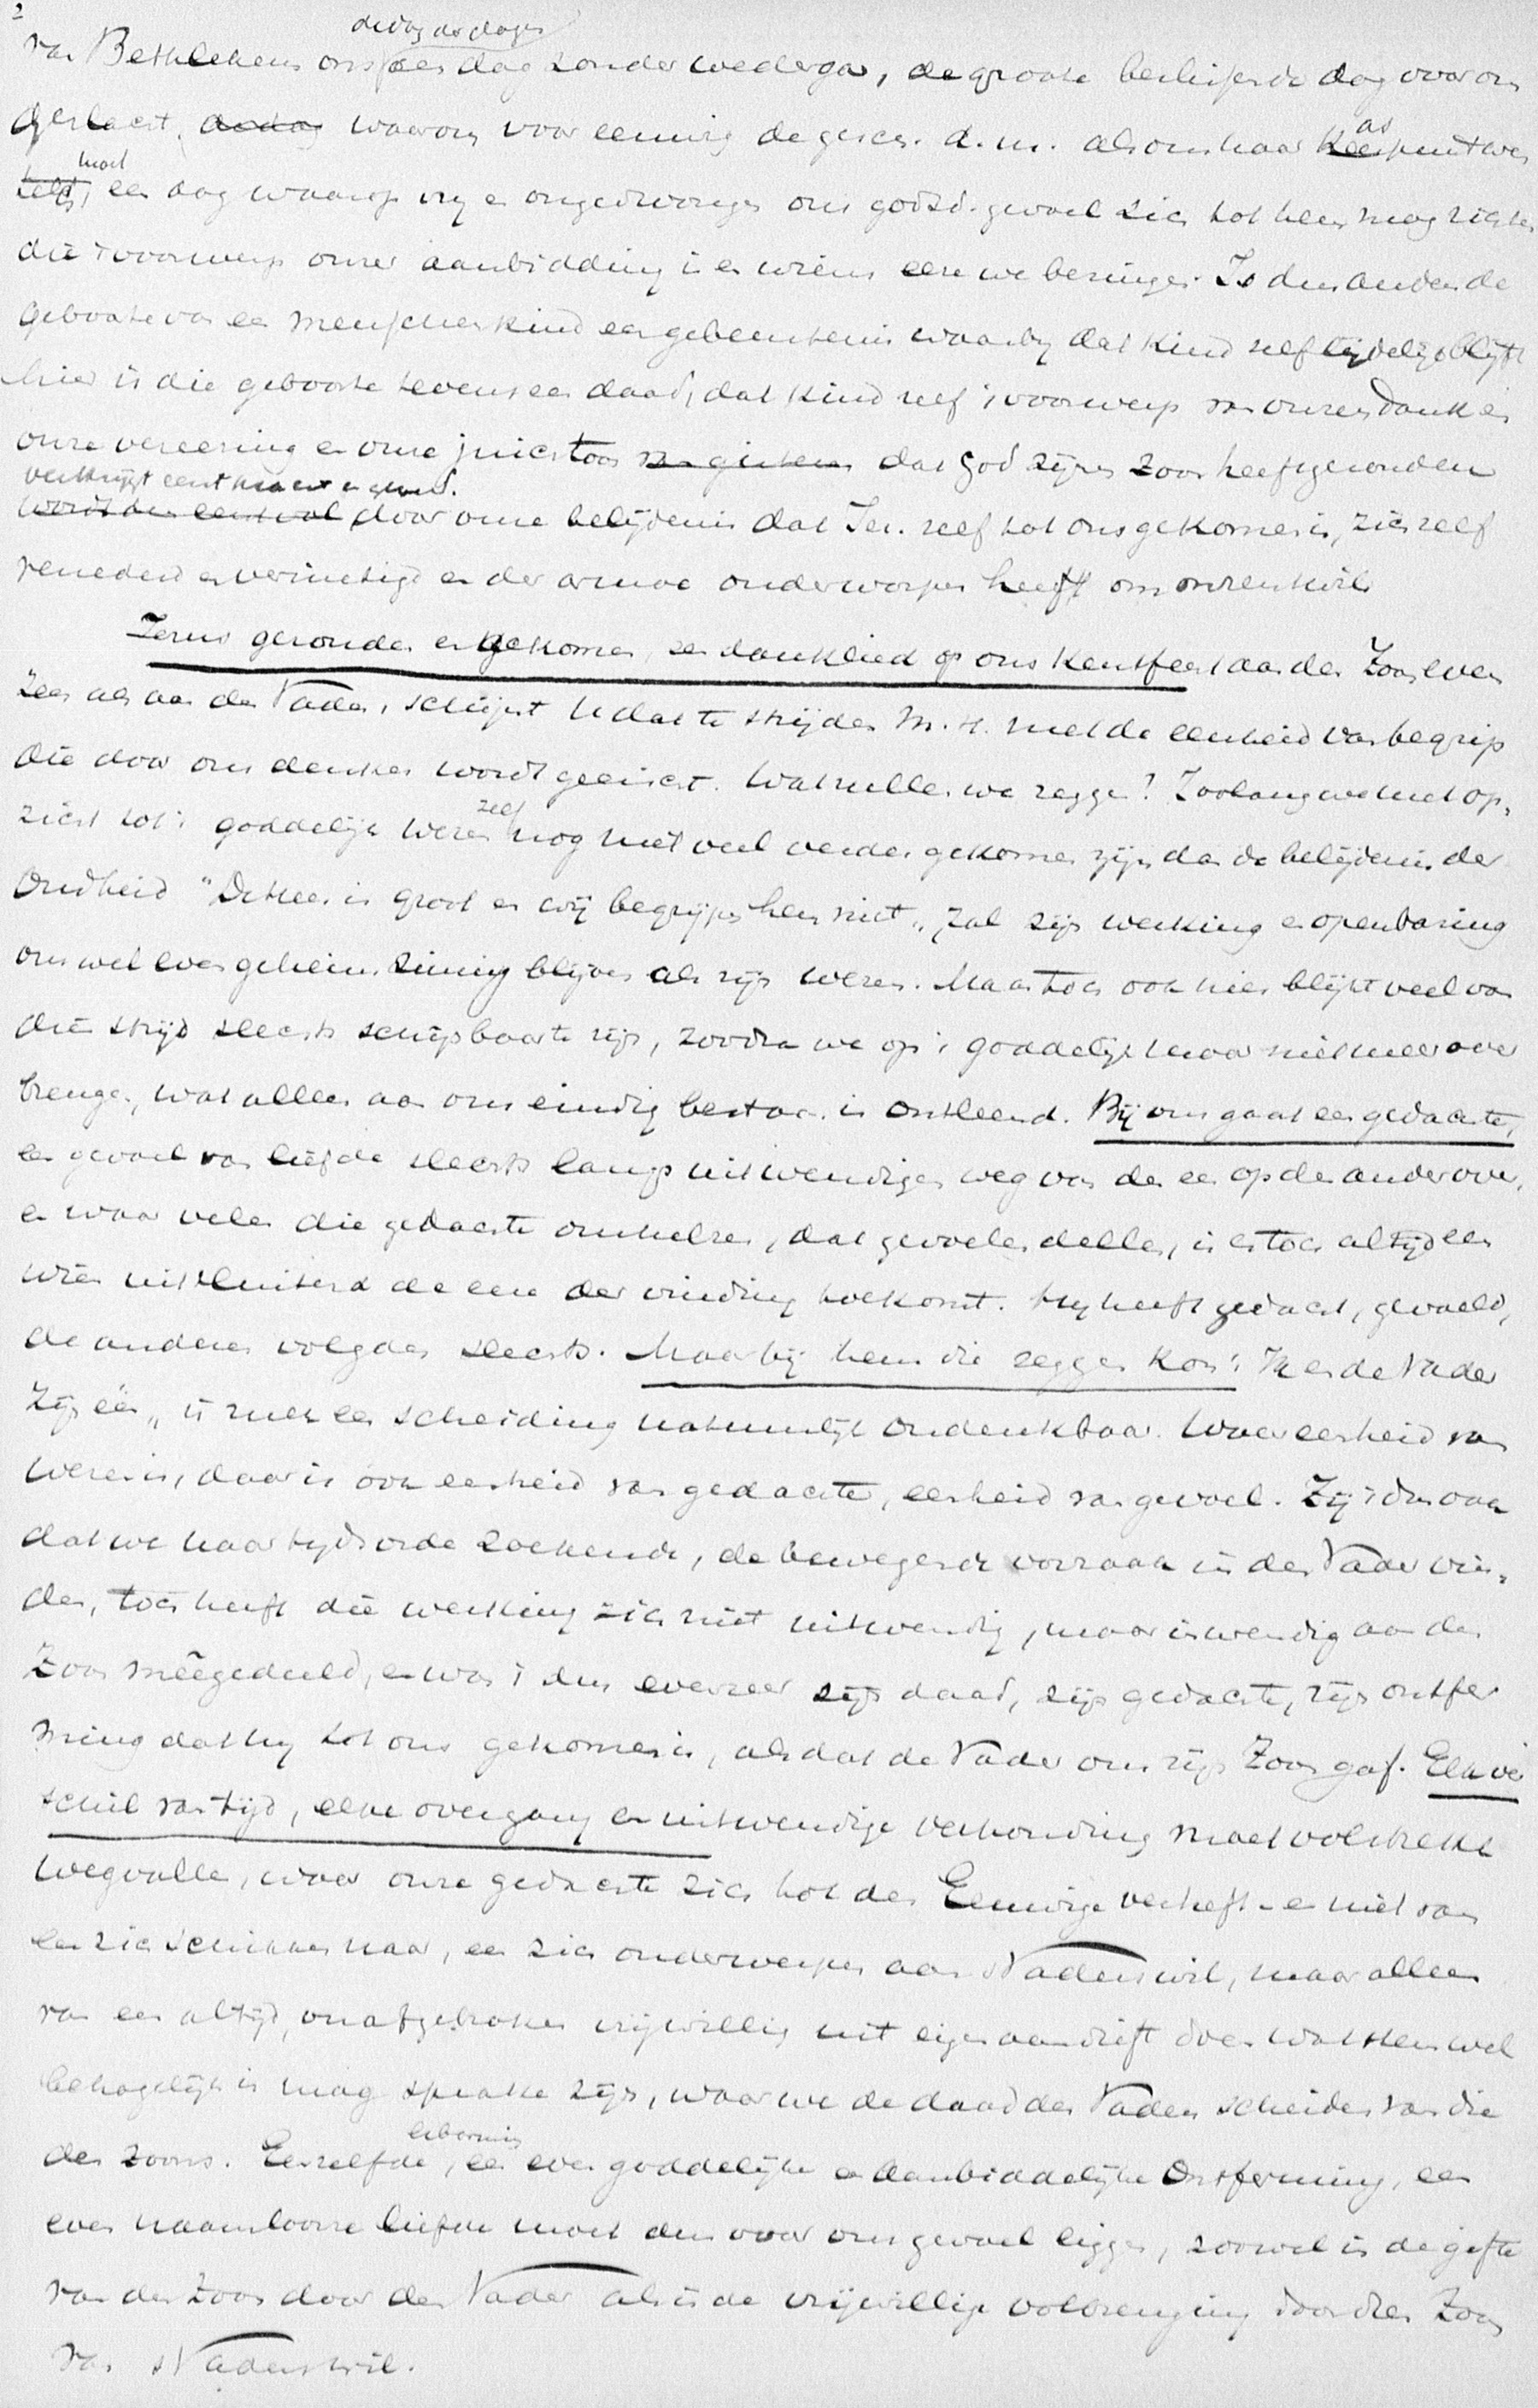 2
de dag der dagen
van Bethlehem ons een dag zonder wederga, de groote beslissende dag voor ons
geslacht, de dag waarom voor eeuwig de gesch. d. m. als om haar as
moet, een dag waarop vrij en ongedwongen ons godsd. gevoel zich tot hem mag richten
die 't voorwerp onzer aanbidding is en wiens eere we bezingen. Is dus anders de
geboorte van een menschenkind een gebeurtenis waarbij dat kind zelf lijdelijk blijft
hier is die geboorte tevens een daad, dat kind zelf 't voorwerp van onzen dank en
onze vereering en onze juichtoon van gisteren dat God zijnen Zoon heeft gezonden
verkrijgt eerst
wordt dus eerst vol door onze belijdenis dat Jez. zelf tot ons gekomen is, zich zelf
vernederd en vernietigd en der armoe onderworpen heeft om onzentwil
Jezus gezonden en gekomen, een danklied op ons Kerstfeest aan den Zoon even
zeer als aan den Vader, schijnt u dat te strijden M. H. met de eenheid van begrip
die door ons denken wordt geeischt. Wat zullen we zeggen? Zoolang we met op-
zicht tot 't goddelijk wezen zelf nog niet veel verder gekomen zijn dan de belijdenis der
Oudheid "De Heer is groot en wij begrijpen hem niet", zal zijn werking en openbaring
ons wel even geheimzinnig blijven als zijn wezen. Maar toch ook hier blijkt veel van
die strijd slechts schijnbaar te zijn, zoodra we op 't goddelijke maar niet meer over
brengen, wat alleen aan ons eindig bestaan is ontleend. Bij ons gaat een gedachte,
een gevoel van liefde slechts langs uitwendigen weg van den een op den ander over,
en waar velen die gedachte omhelzen, dat gevoelen deelen, is er toch altijd een
wien uitsluitend de eere der vinding toekomt. Hij heeft gedacht, gevoeld,
de anderen volgden slechts. Maar bij hem die zeggen kon: "Ik en de Vader
zijn één", is zulk een scheiding natuurlijk ondenkbaar. Waar eenheid van
wezen is, daar is ook eenheid van gedachte, eenheid van gevoel. Zij 't dus ook
dat we naar tijdsorde zoekende, de bewegende oorzaak in den Vader vin-
den, toch heeft die werking zich niet uitwendig, maar inwendig aan den
Zoon meêgedeeld, en was 't dus evenzeer zijn daad, zijn gedachte, zijn ontfer
ming dat hij tot ons gekomen is, als dat de Vader ons zijn Zoon gaf. Elk ver
schil van tijd, elke overgang en uitwendige verhouding moet volstrekt
wegvallen, waar onze gedachte zich tot den Eeuwige verheft en niet van
een zich schikken naar, een zich onderwerpen aan 's Vaders wil, maar alleen
van een altijd, onafgebroken vrijwillig uit eigen aandrift doen wat Hem wel
behagelijk is mag sprake zijn, waar we de daad des Vaders scheiden van die
des Zoons. Eenzelfde erbarmis, een even goddelijke en aanbiddelijke Ontferming, een
even naamlooze liefde moet dus voor ons gevoel liggen, zoowel in de gifte
van den Zoon door den Vader als in de vrijwillige volbrenging door den Zoon
van 's Vaders wil.